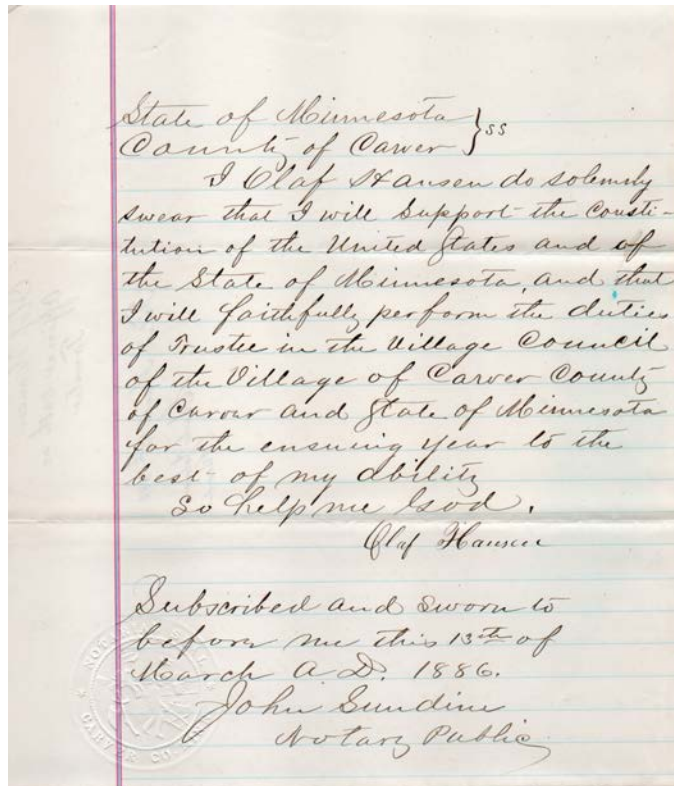 State of Minnesota
County of Carver } ss
I Olaf Hansen do solemnly
swear that I will Support the Consti-
tution of the United States and of
the State of Minnesota, and that
I will faithfully perform the duties
of Trustee in the Village Council
of the Village of Carver County
of Carver and State of Minnesota
for the ensuing year to the
best of my ability
So help me God.
Olaf Hansen
Subscribed and Sworn to
before me this 13th of
March A.D. 1886.
John Sundine
Notary Public
NOTARIAL
CARVER CO